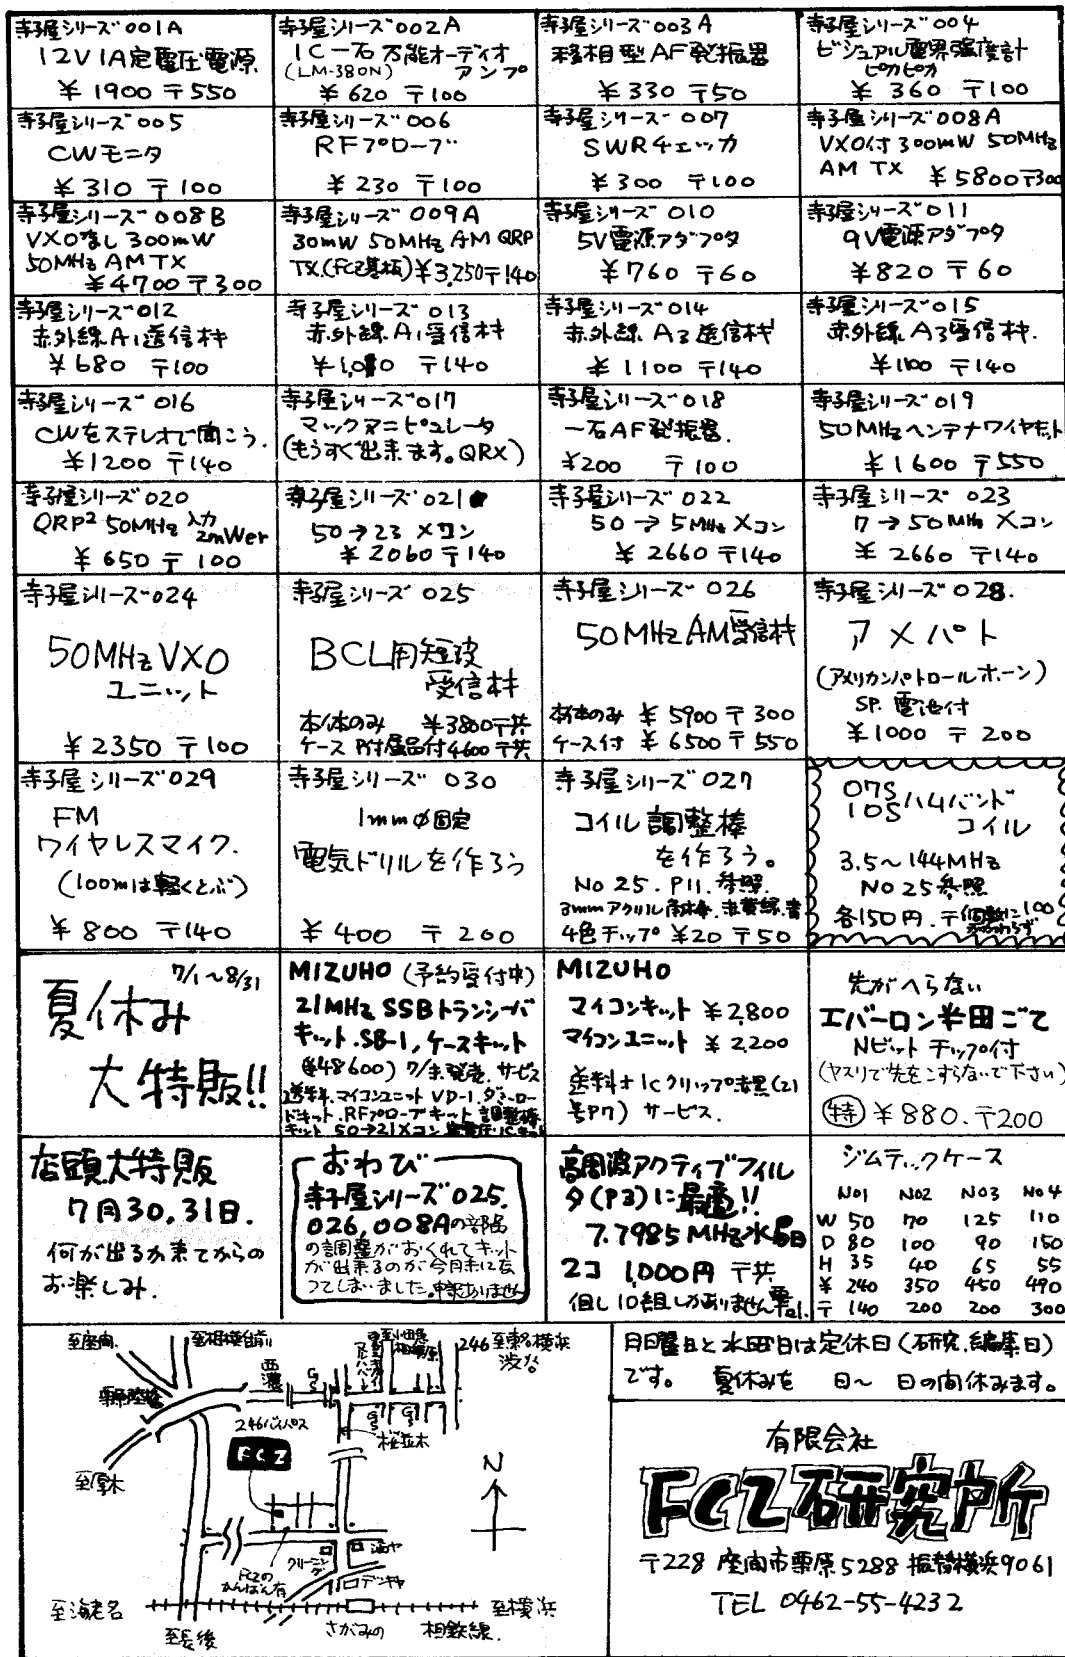 寺子屋シリーズ001A
12V1A定電圧電源
¥1900 〒550
寺子屋シリーズ002A
IC一石万能オーディオ
(LM-380N) アンプ
¥620 〒100
寺子屋シリーズ003A
移相型AF発振器
¥330 〒50
寺子屋シリーズ004
ビジュアル電界強度計
ピカピカ
¥360 〒100
寺子屋シリーズ005
CWモニタ
¥310 〒100
寺子屋シリーズ006
RFプローブ
¥230 〒100
寺子屋シリーズ007
SWRチェッカ
¥300 〒100
寺子屋シリーズ008A
VXO付300mW 50MHz
AM TX ¥5800〒300
寺子屋シリーズ008B
VXOなし300mW
50MHz AM TX
¥4700 〒300
寺子屋シリーズ009A
30mW 50MHz AM QRP
TX.(FCZ基板)¥3,250〒140
寺子屋シリーズ010
5V電源アダプタ
¥760 〒60
寺子屋シリーズ011
9V電源アダプタ
¥820 〒60
寺子屋シリーズ012
赤外線A1送信機
¥680 〒100
寺子屋シリーズ013
赤外線A1受信機
〒140
寺子屋シリーズ014
赤外線A3送信機
¥1100 〒140
寺子屋シリーズ015
赤外線A3受信機.
¥1100 〒140
寺子屋シリーズ016
CWをステレオで聞こう.
¥1200 〒140
寺子屋シリーズ017
マックアニピュレータ
(もうすぐ出来ます。QRX)
寺子屋シリーズ018
一石AF発振器.
¥200 〒100
寺子屋シリーズ019
50MHzヘンテナワイヤセット
¥1600 〒550
寺子屋シリーズ020
QRP² 50MHz 入力
2mWer
¥650 〒100
寺子屋シリーズ021
50→23 メコン
¥2060〒140
寺子屋シリーズ022
50→5MHz Xコン
¥2660〒140
寺子屋シリーズ 023
7→50MHz Xコン
¥2660 〒140
寺子屋シリーズ024
50MHz VXO
ユニット
¥2350 〒100
寺子屋シリーズ 025
BCL用短波
受信機
本体のみ ¥3800〒共
ケースP付属品付4600〒共
寺子屋シリーズ 026
50MHz AM受信機
本体のみ ¥5900 〒300
ケース付 ¥6500〒550
寺子屋シリーズ 028.
アメパト
(アメリカンパトロールホーン)
SP. 電池付
¥1000 〒200
寺子屋シリーズ029
FM
ワイヤレスマイク.
(100mは軽くとぶ)
¥800 〒140
寺子屋シリーズ 030
1mmφ固定
電気ドリルを作ろう
¥400 〒200
寺子屋シリーズ 027
コイル調整棒
を作ろう。
No25.P11.参照.
3mmアクリル角棒.赤黄緑青
4色チップ ¥20 〒50
07S
10Sハムバンド
コイル
3.5〜144MHz
No25参照
各150円.〒個数に100
かかわらず
7/1〜8/31
夏休み
大特販!!
MIZUHO (予約受付中)
21MHz SSBトランシーバ
キット.SB-1,ケースキット
(¥48600) 7/末発売.サービス
送料.マイコンユニットVD-1.ダミーロー
ドキット.RFプローブキット調整棒
キット 50→21メコン
MIZUHO
マイコンキット ¥2,800
マイコンユニット ¥2,200
送料+ICクリップ進呈(21
号P7) サービス.
先がへらない
エバーロン半田ごて
Nビット チップ付
(ヤスリで先をこすらないで下さい)
特 ¥880.〒200
店頭大特販
7月30,31日.
何が出るか来てからの
お楽しみ.
おわび
寺子屋シリーズ025.
026,008Aの部品
の調整がおくれてキット
が出来るのが今月末になっ
てしまいました。申訳ありません
高周波アクティブフィル
タ(P3)に最適!!
7.7985MHz水晶
2コ 1,000円 〒共
但し10組しかありません
ジムテックケース
No1 No2 No3 No4
W 50 70 125 110
D 80 100 90 150
H 35 40 65 55
¥ 240 350 450 490
〒 140 200 200 300
至座間.
至相模台前
至小田急
相模原
246至東名横浜
渋谷
西濃
GS
246バイパス
GS
GS
桜並木
至厚木
FCZ
N
クリーニング
酒ヤ
FCZの
かんばん有
デンキヤ
至海老名
至長後
さがみの
相鉄線.
至横浜
月曜日と水曜日は定休日(研究.編集日)
です。 夏休みを 日〜 日の間休みます。
有限会社
FCZ研究所
〒228 座間市栗原5288 振替横浜9061
TEL 0462-55-4232